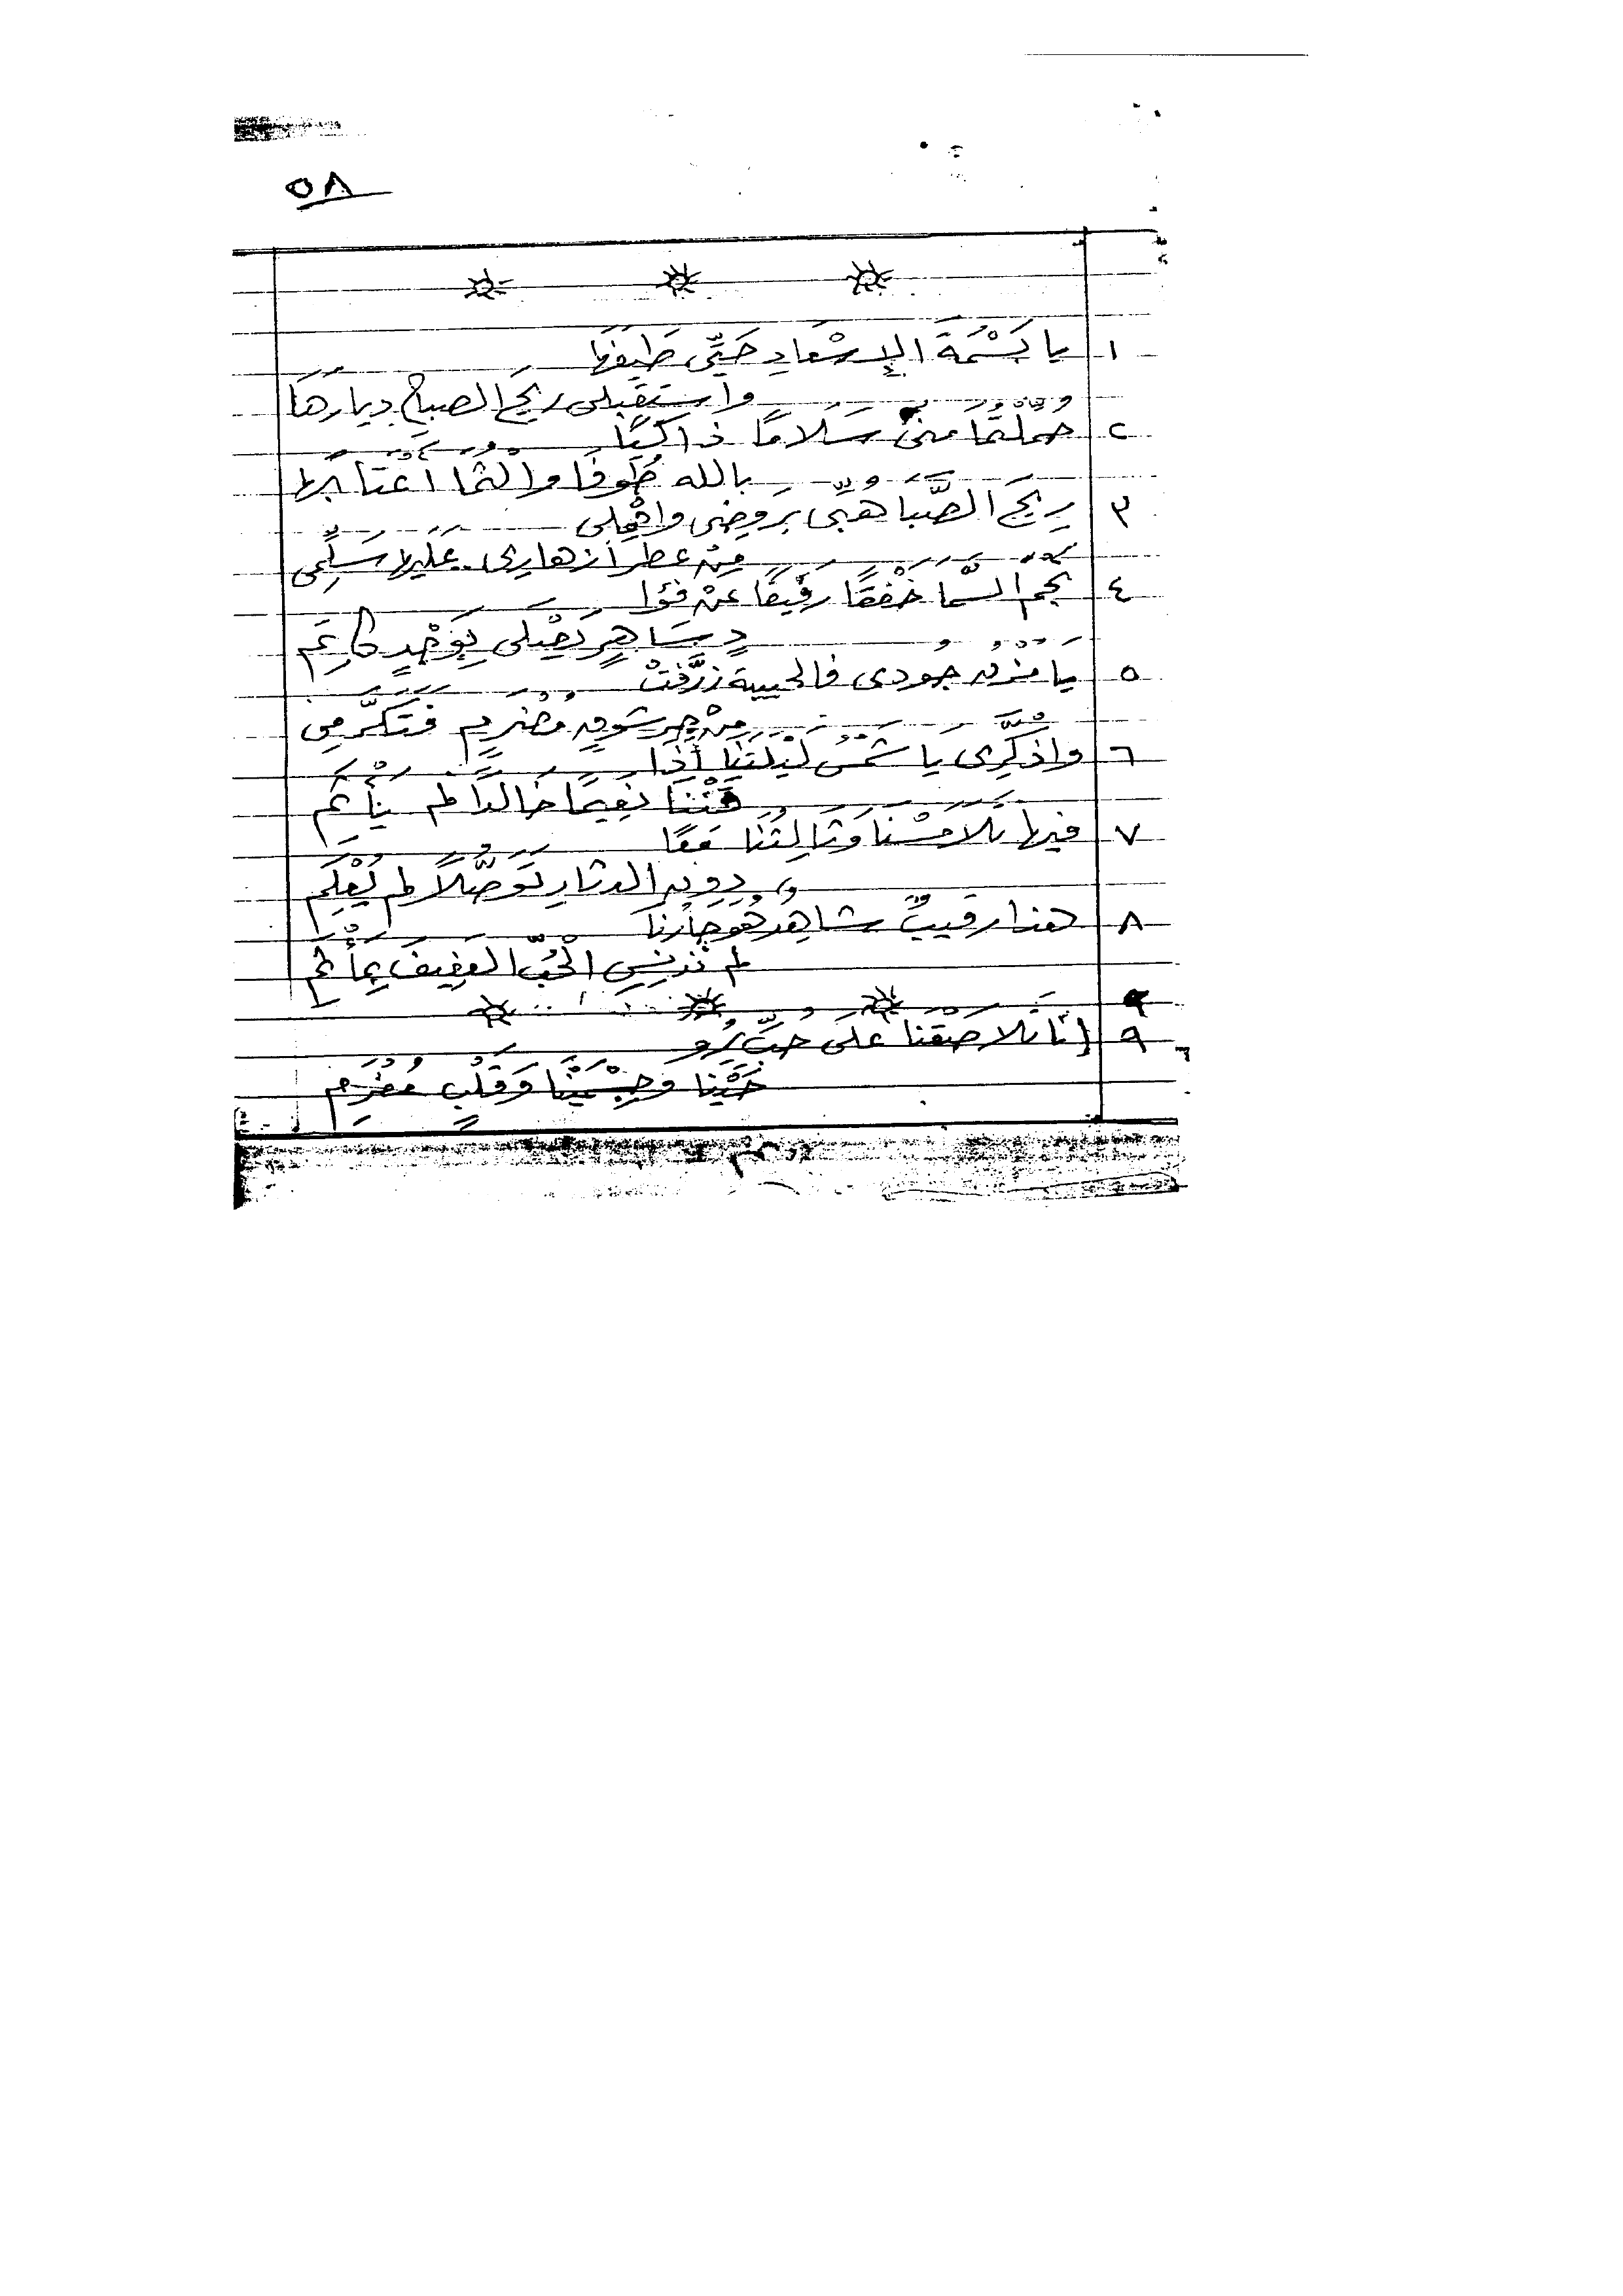 ٥٨
١ يا بَسْمَةَ الإِسْعَادِ حَيِّى طَيفَها
واستقبلى ريحَ الصباحِ ديارَهَا
٢ حُمِّلْتُمَا منى سَلَامًا ذاكيًا
بالله طُوفَا والْثُما أعْتابَها
٣ رِيحَ الصَّبا هُبِّى بروضِى واحْمِلى
مِنْ عطرِ أزهارِى عَلَيها سَلِّمِى
٤ نجم السَّما خَفْقًا رَقيقًا عنْ فؤا
دٍ سَاهِرٍ
٥ يَا مُزْنُ جُودى فالحبيبةُ
مِنْ حرِ شوقٍ مضرمٍ فَتَكَرَّمِى
٦ وَاذَّكِّرِى يَا شَمْسُ لَيْلَتَنا
نَعِيمًا خالدًا لم يَأْثَمِ
٧ فيها تَلَامَسْنا وَثَالِثُنا مَعًا
دونَ الدثارِ تَوَصُّلًا لم يُعْلَمِ
٨ هذا رقيبٌ شاهِدٌ هُوَ جارُنا
لم نُدْنِسِ الْحُبَّ العَفِيفَ بمأثمِ
٩ إنَّا تَلاصَقْنا عَلَى حبٍّ برُو
حَيْنا وجِسْمَيْنا وَقَلْبٍ مُغْرَمِ